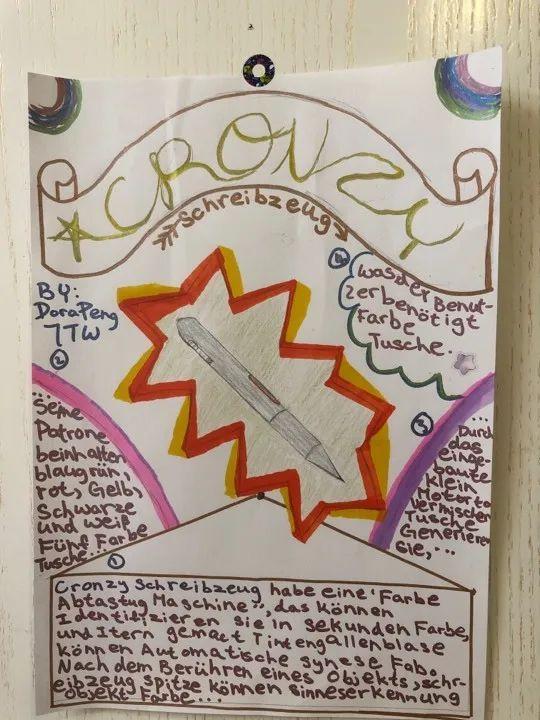 CRONZY
Schreibzeug
BY:
Dora Peng
7TW
②
... Seine
Patrone
beinhalten
blaugrün,
rot, Gelb,
Schwarze
und weiß
Fünf Farbe
Tusche...
①
Cronzy Schreibzeug habe eine "Farbe
Abtastug Maschine", das können
Identifizieren sie in sekunden Farbe,
und Itern gemact Tintengallenblase
können Automatische synese Fab.
Nach dem Berühren eines Objekts, schr-
eibzeug spitze können sinneserkennung
objekt Farbe...
③
... Durch
das
einge-
baute
Klein
Motor to
vermischen
Tusche
Generieren
Sie,...
④
was der Benut-
zer benötigt
Farbe
Tusche.